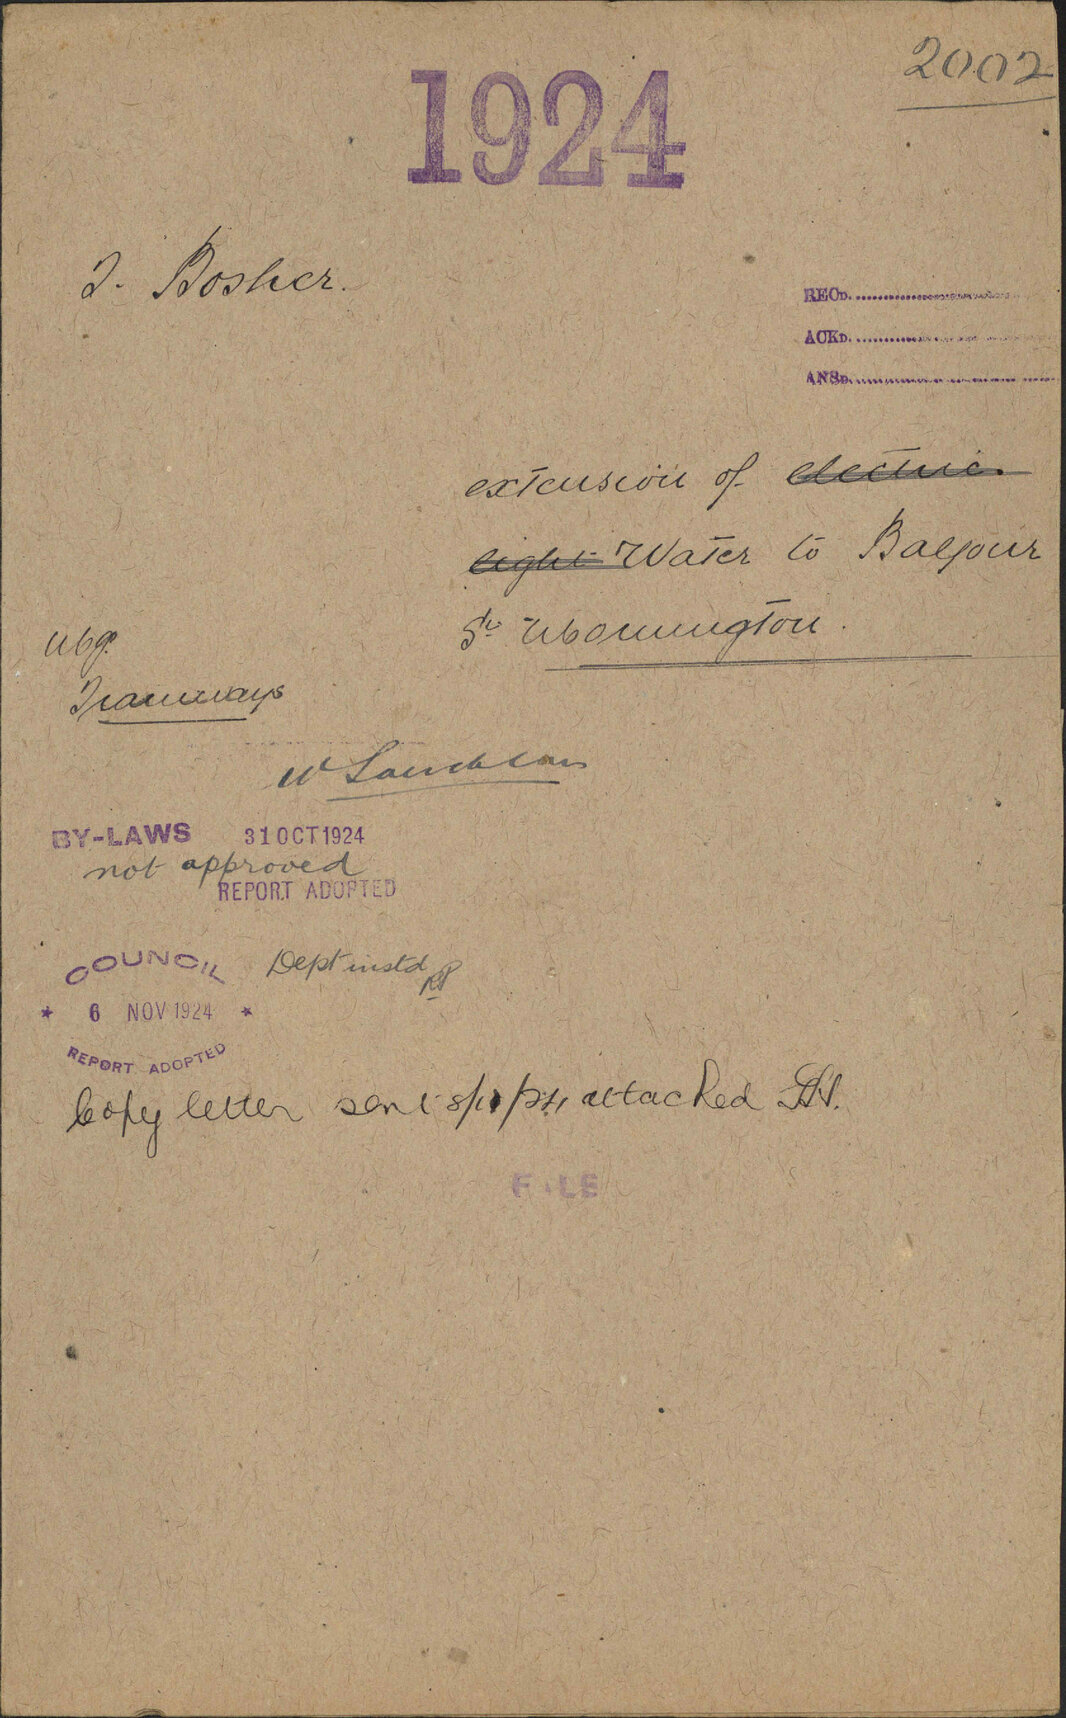 2002
1924
T. Bosher.
RECD.
ACKD.
ANSD.
extension of electric
light Water to Balfour
St. Mornington.
Mgr.
Tramways
BY-LAWS 31 OCT 1924
not approved
REPORT ADOPTED
COUNCIL Dept instd
* 6 NOV 1924 *
REPORT ADOPTED
Copy letter sent 8/11/24 attached
F LE